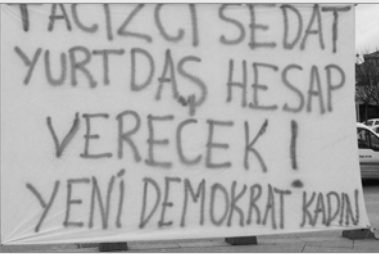 TACİZCİ SEDAT
YURTDAŞ HESAP
VERECEK!
YENİ DEMOKRAT KADIN